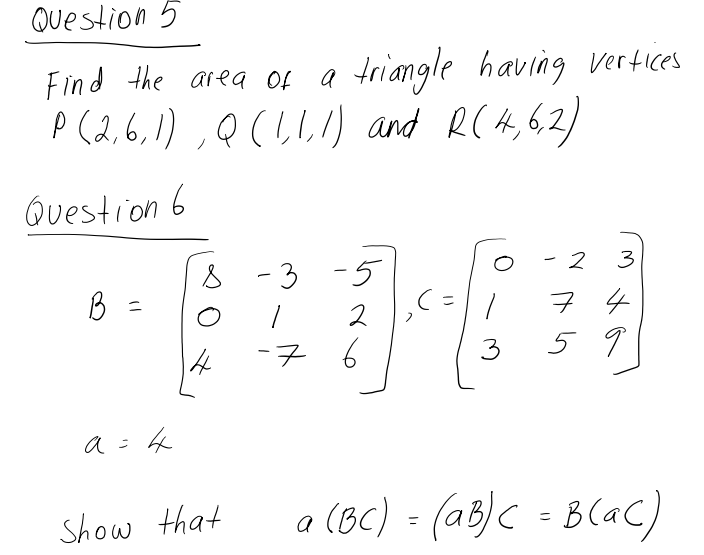 Question 5
Find the area of a triangle having vertices
P(2,6,1) , Q(1,1,1) and R(4,6,2)
Question 6
B = [8 -3 -5
0 1 2
4 -7 6] , C = [0 -2 3
1 7 4
3 5 9]
a = 4
Show that a(BC) = (aB)C = B(aC)